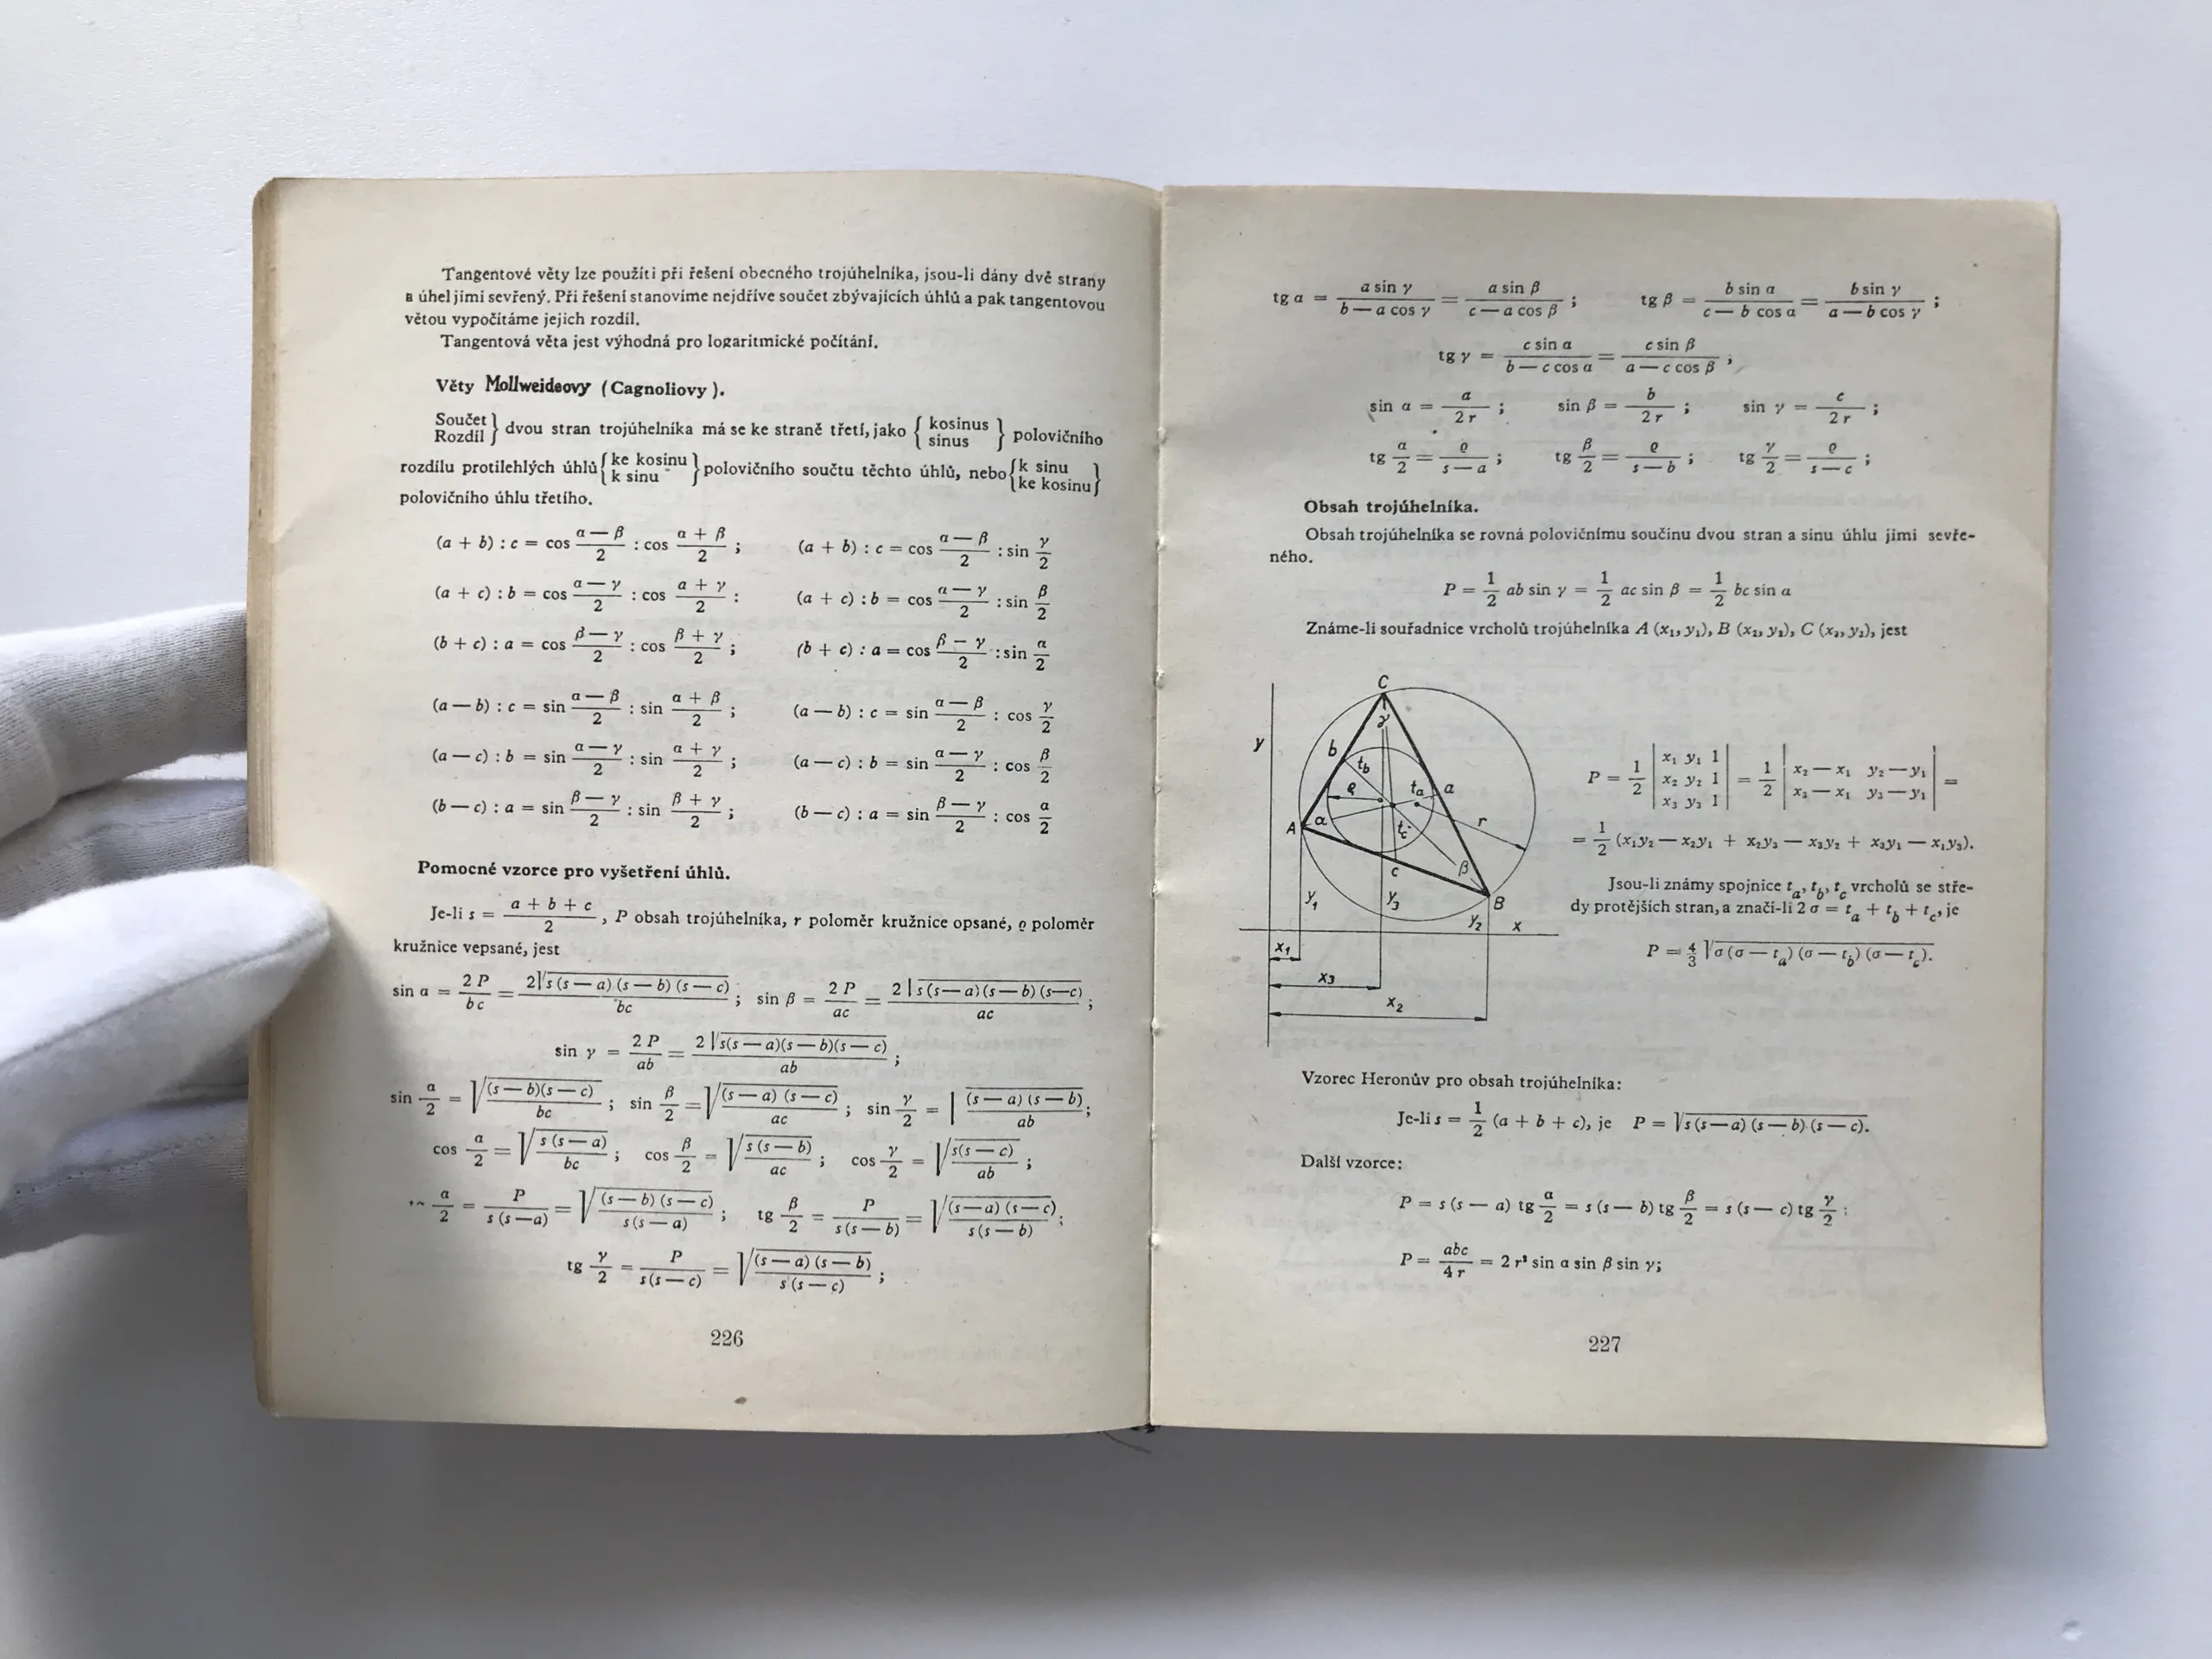 Tangentové věty lze použíti při řešení obecného trojúhelníka, jsou-li dány dvě strany
a úhel jimi sevřený. Při řešení stanovíme nejdříve součet zbývajících úhlů a pak tangentovou
větou vypočítáme jejich rozdíl.
Tangentová věta jest výhodná pro logaritmické počítání.
Věty Mollweideovy (Cagnoliovy).
Součet} dvou stran trojúhelníka má se ke straně třetí, jako {kosinus} polovičního
Rozdíl} {sinus}
rozdílu protilehlých úhlů {ke kosinu} polovičního součtu těchto úhlů, nebo {k sinu}
{k sinu} {ke kosinu}
polovičního úhlu třetího.
(a + b) : c = cos (α — β)/2 : cos (α + β)/2 ; (a + b) : c = cos (α — β)/2 : sin γ/2
(a + c) : b = cos (α — γ)/2 : cos (α + γ)/2 : (a + c) : b = cos (α — γ)/2 : sin β/2
(b + c) : a = cos (β — γ)/2 : cos (β + γ)/2 ; (b + c) : a = cos (β — γ)/2 : sin α/2
(a — b) : c = sin (α — β)/2 : sin (α + β)/2 ; (a — b) : c = sin (α — β)/2 : cos γ/2
(a — c) : b = sin (α — γ)/2 : sin (α + γ)/2 ; (a — c) : b = sin (α — γ)/2 : cos β/2
(b — c) : a = sin (β — γ)/2 : sin (β + γ)/2 ; (b — c) : a = sin (β — γ)/2 : cos α/2
Pomocné vzorce pro vyšetření úhlů.
Je-li s = (a + b + c)/2 , P obsah trojúhelníka, r poloměr kružnice opsané, ϱ poloměr
kružnice vepsané, jest
sin α = 2 P/bc = 2√(s (s — a) (s — b) (s — c))/bc ; sin β = 2 P/ac = 2√(s (s — a) (s — b) (s — c))/ac ;
sin γ = 2 P/ab = 2√(s(s — a)(s — b)(s — c))/ab ;
sin α/2 = √((s — b)(s — c)/bc) ; sin β/2 = √((s — a) (s — c)/ac) ; sin γ/2 = √((s — a) (s — b)/ab) ;
cos α/2 = √(s (s — a)/bc) ; cos β/2 = √(s (s — b)/ac) ; cos γ/2 = √(s(s — c)/ab) ;
α/2 = P/(s (s — a)) = √((s — b) (s — c)/(s (s — a))) ; tg β/2 = P/(s (s — b)) = √((s — a) (s — c)/(s (s — b))) ;
tg γ/2 = P/(s (s — c)) = √((s — a) (s — b)/(s (s — c))) ;
226
tg α = a sin γ/(b — a cos γ) = a sin β/(c — a cos β) ; tg β = b sin α/(c — b cos α) = b sin γ/(a — b cos γ) ;
tg γ = c sin α/(b — c cos α) = c sin β/(a — c cos β) ,
sin α = a/2 r ; sin β = b/2 r ; sin γ = c/2 r ;
tg α/2 = ϱ/(s — a) ; tg β/2 = ϱ/(s — b) ; tg γ/2 = ϱ/(s — c) ;
Obsah trojúhelníka.
Obsah trojúhelníka se rovná polovičnímu součinu dvou stran a sinu úhlu jimi sevře-
ného.
P = 1/2 ab sin γ = 1/2 ac sin β = 1/2 bc sin α
Známe-li souřadnice vrcholů trojúhelníka A (x₁, y₁), B (x₂, y₂), C (x₃, y₃), jest
C
γ
y
b
t_b
ϱ
t_a
a
A
α
t_c
r
c
β
B
y₁
y₃
y₂
x
x₁
x₃
x₂
P = 1/2 | x₁ y₁ 1 | = 1/2 | x₂ — x₁ y₂ — y₁ | =
| x₂ y₂ 1 | | x₃ — x₁ y₃ — y₁ |
| x₃ y₃ 1 |
= 1/2 (x₁y₂ — x₂y₁ + x₂y₃ — x₃y₂ + x₃y₁ — x₁y₃).
Jsou-li známy spojnice t_a, t_b, t_c vrcholů se stře-
dy protějších stran, a značí-li 2 σ = t_a + t_b + t_c, je
P = 4/3 √(σ (σ — t_a) (σ — t_b) (σ — t_c)).
Vzorec Heronův pro obsah trojúhelníka:
Je-li s = 1/2 (a + b + c), je P = √(s (s — a) (s — b) (s — c)).
Další vzorce:
P = s (s — a) tg α/2 = s (s — b) tg β/2 = s (s — c) tg γ/2 ;
P = abc/4 r = 2 r² sin α sin β sin γ;
227